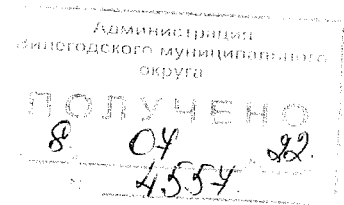 Администрация
Вилегодского муниципального
округа
ПОЛУЧЕНО
8. 04 22.
№ 4557.